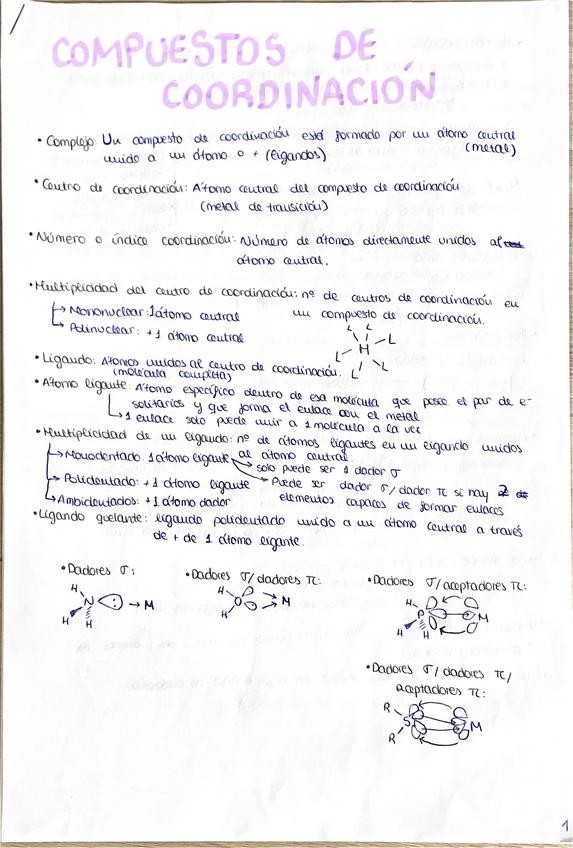 COMPUESTOS DE
COORDINACIÓN
• Complejo: Un compuesto de coordinación está formado por un átomo central
unido a un átomo o + (ligandos) (metal)
• Centro de coordinación: Átomo central del compuesto de coordinación
(metal de transición)
• Número o índice coordinación: Número de átomos directamente unidos al
átomo central.
• Multiplicidad del centro de coordinación: nº de centros de coordinación en
↳ Mononuclear: 1 átomo central un compuesto de coordinación.
↳ Polinuclear: + 1 átomo central
L L
L – M – L
L L
• Ligando: Átomos unidos al centro de coordinación.
(molécula completa)
• Átomo ligante: Átomo específico dentro de esa molécula que posee el par de e-
solitarios y que forma el enlace con el metal
↳ 1 enlace solo puede unir a 1 molécula a la vez
• Multiplicidad de un ligando: nº de átomos ligantes en un ligando unidos
al átomo central.
↳ Monodentado: 1 átomo ligante → solo puede ser 1 dador σ
↳ Polidentado: + 1 átomo ligante → Puede ser dador σ/dador π si hay 2
↳ Ambidentados: + 1 átomo dador elementos capaces de formar enlaces
• Ligando quelante: ligando polidentado unido a un átomo central a través
de + de 1 átomo ligante.
• Dadores σ:
H N : → M
H H
• Dadores σ/dadores π:
H O → M
H
• Dadores σ/aceptadores π:
H P M
H H
• Dadores σ/dadores π/
aceptadores π:
R S M
R
1